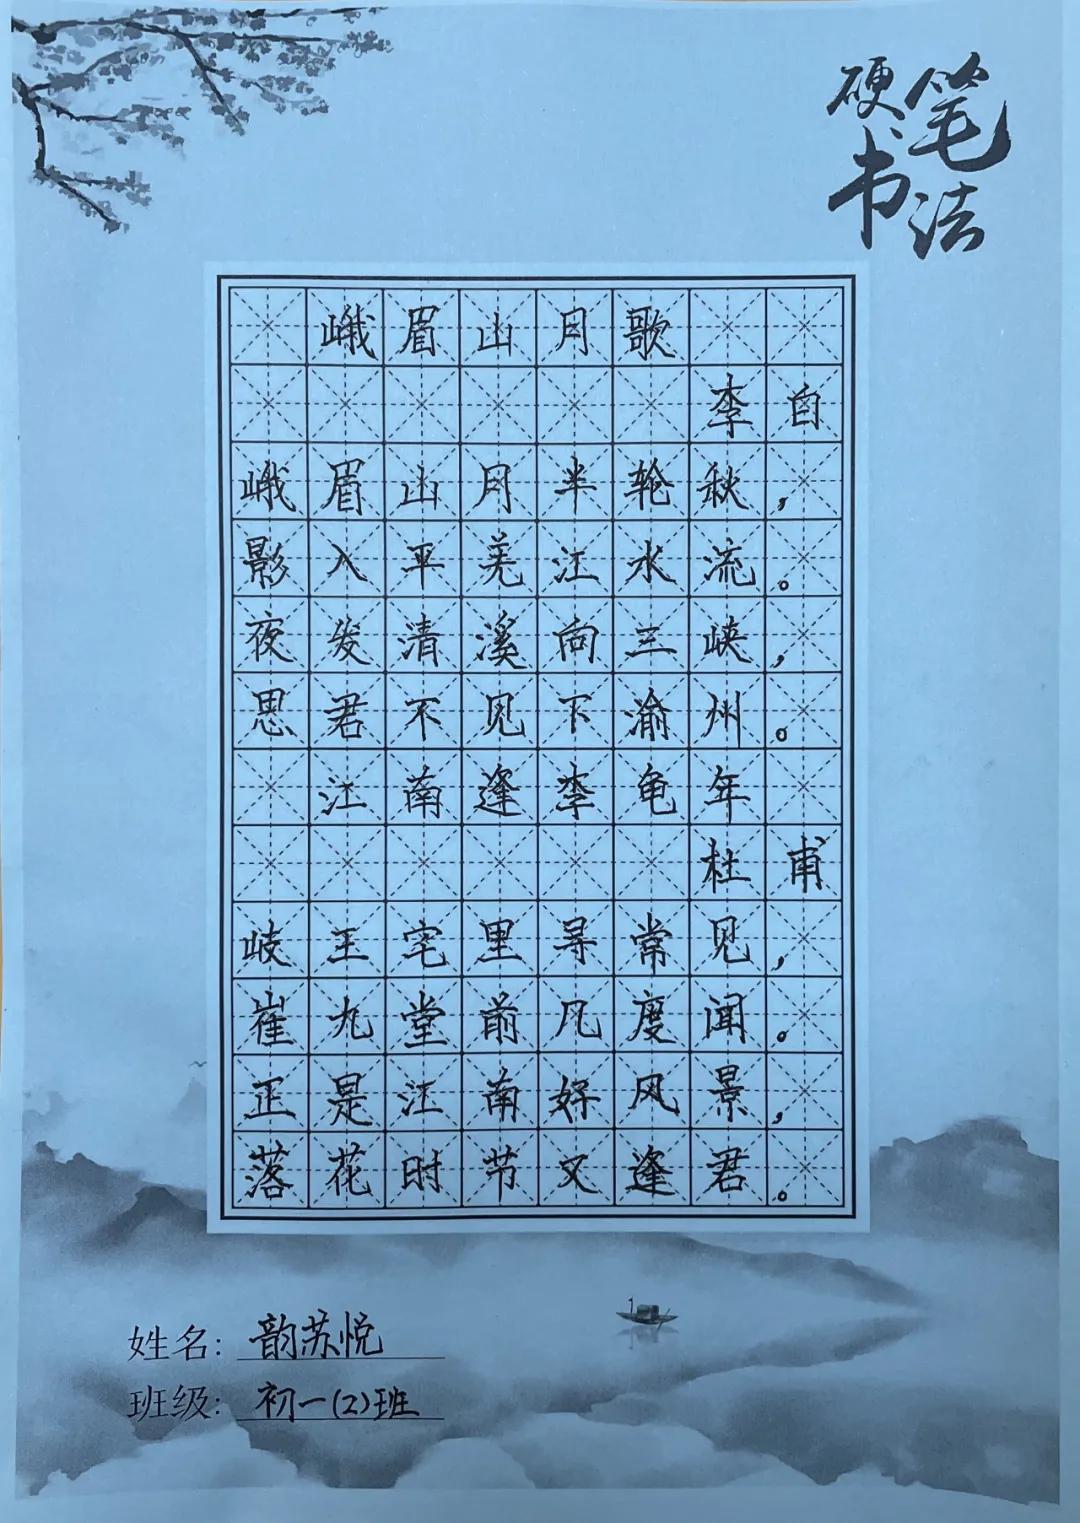 硬笔
书法
峨眉山月歌
李白
峨眉山月半轮秋，
影入平羌江水流。
夜发清溪向三峡，
思君不见下渝州。
江南逢李龟年
杜甫
岐王宅里寻常见，
崔九堂前几度闻。
正是江南好风景，
落花时节又逢君。
姓名：韵苏悦
班级：初一(2)班